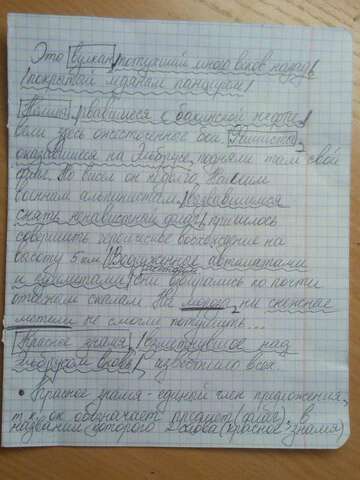 Это вулкан, потухший много веков назад,
покрытый ледяным панцирем.
рвавшиеся к бакинской нефти,
вели здесь ожесточенные бои.
оказавшиеся на Эльбрусе, подняли там свой
флаг. Но висел он недолго. Нашим
военным альпинистам,
снять ненавистный флаг, пришлось
совершить героическое восхождение на
высоту 5 км. Вооруженные автоматами
и они взбирались по почти
отвесным скалам. Ни мороз, ни снежные
метели не смогли потушить...
Красное знамя, взметнувшее над
Эльбрусом вновь, известило всех.
• Красное знамя - единый член предложения,
т.к. он обозначает предмет (флаг), в
названии которого 2 слова (красное, знамя)